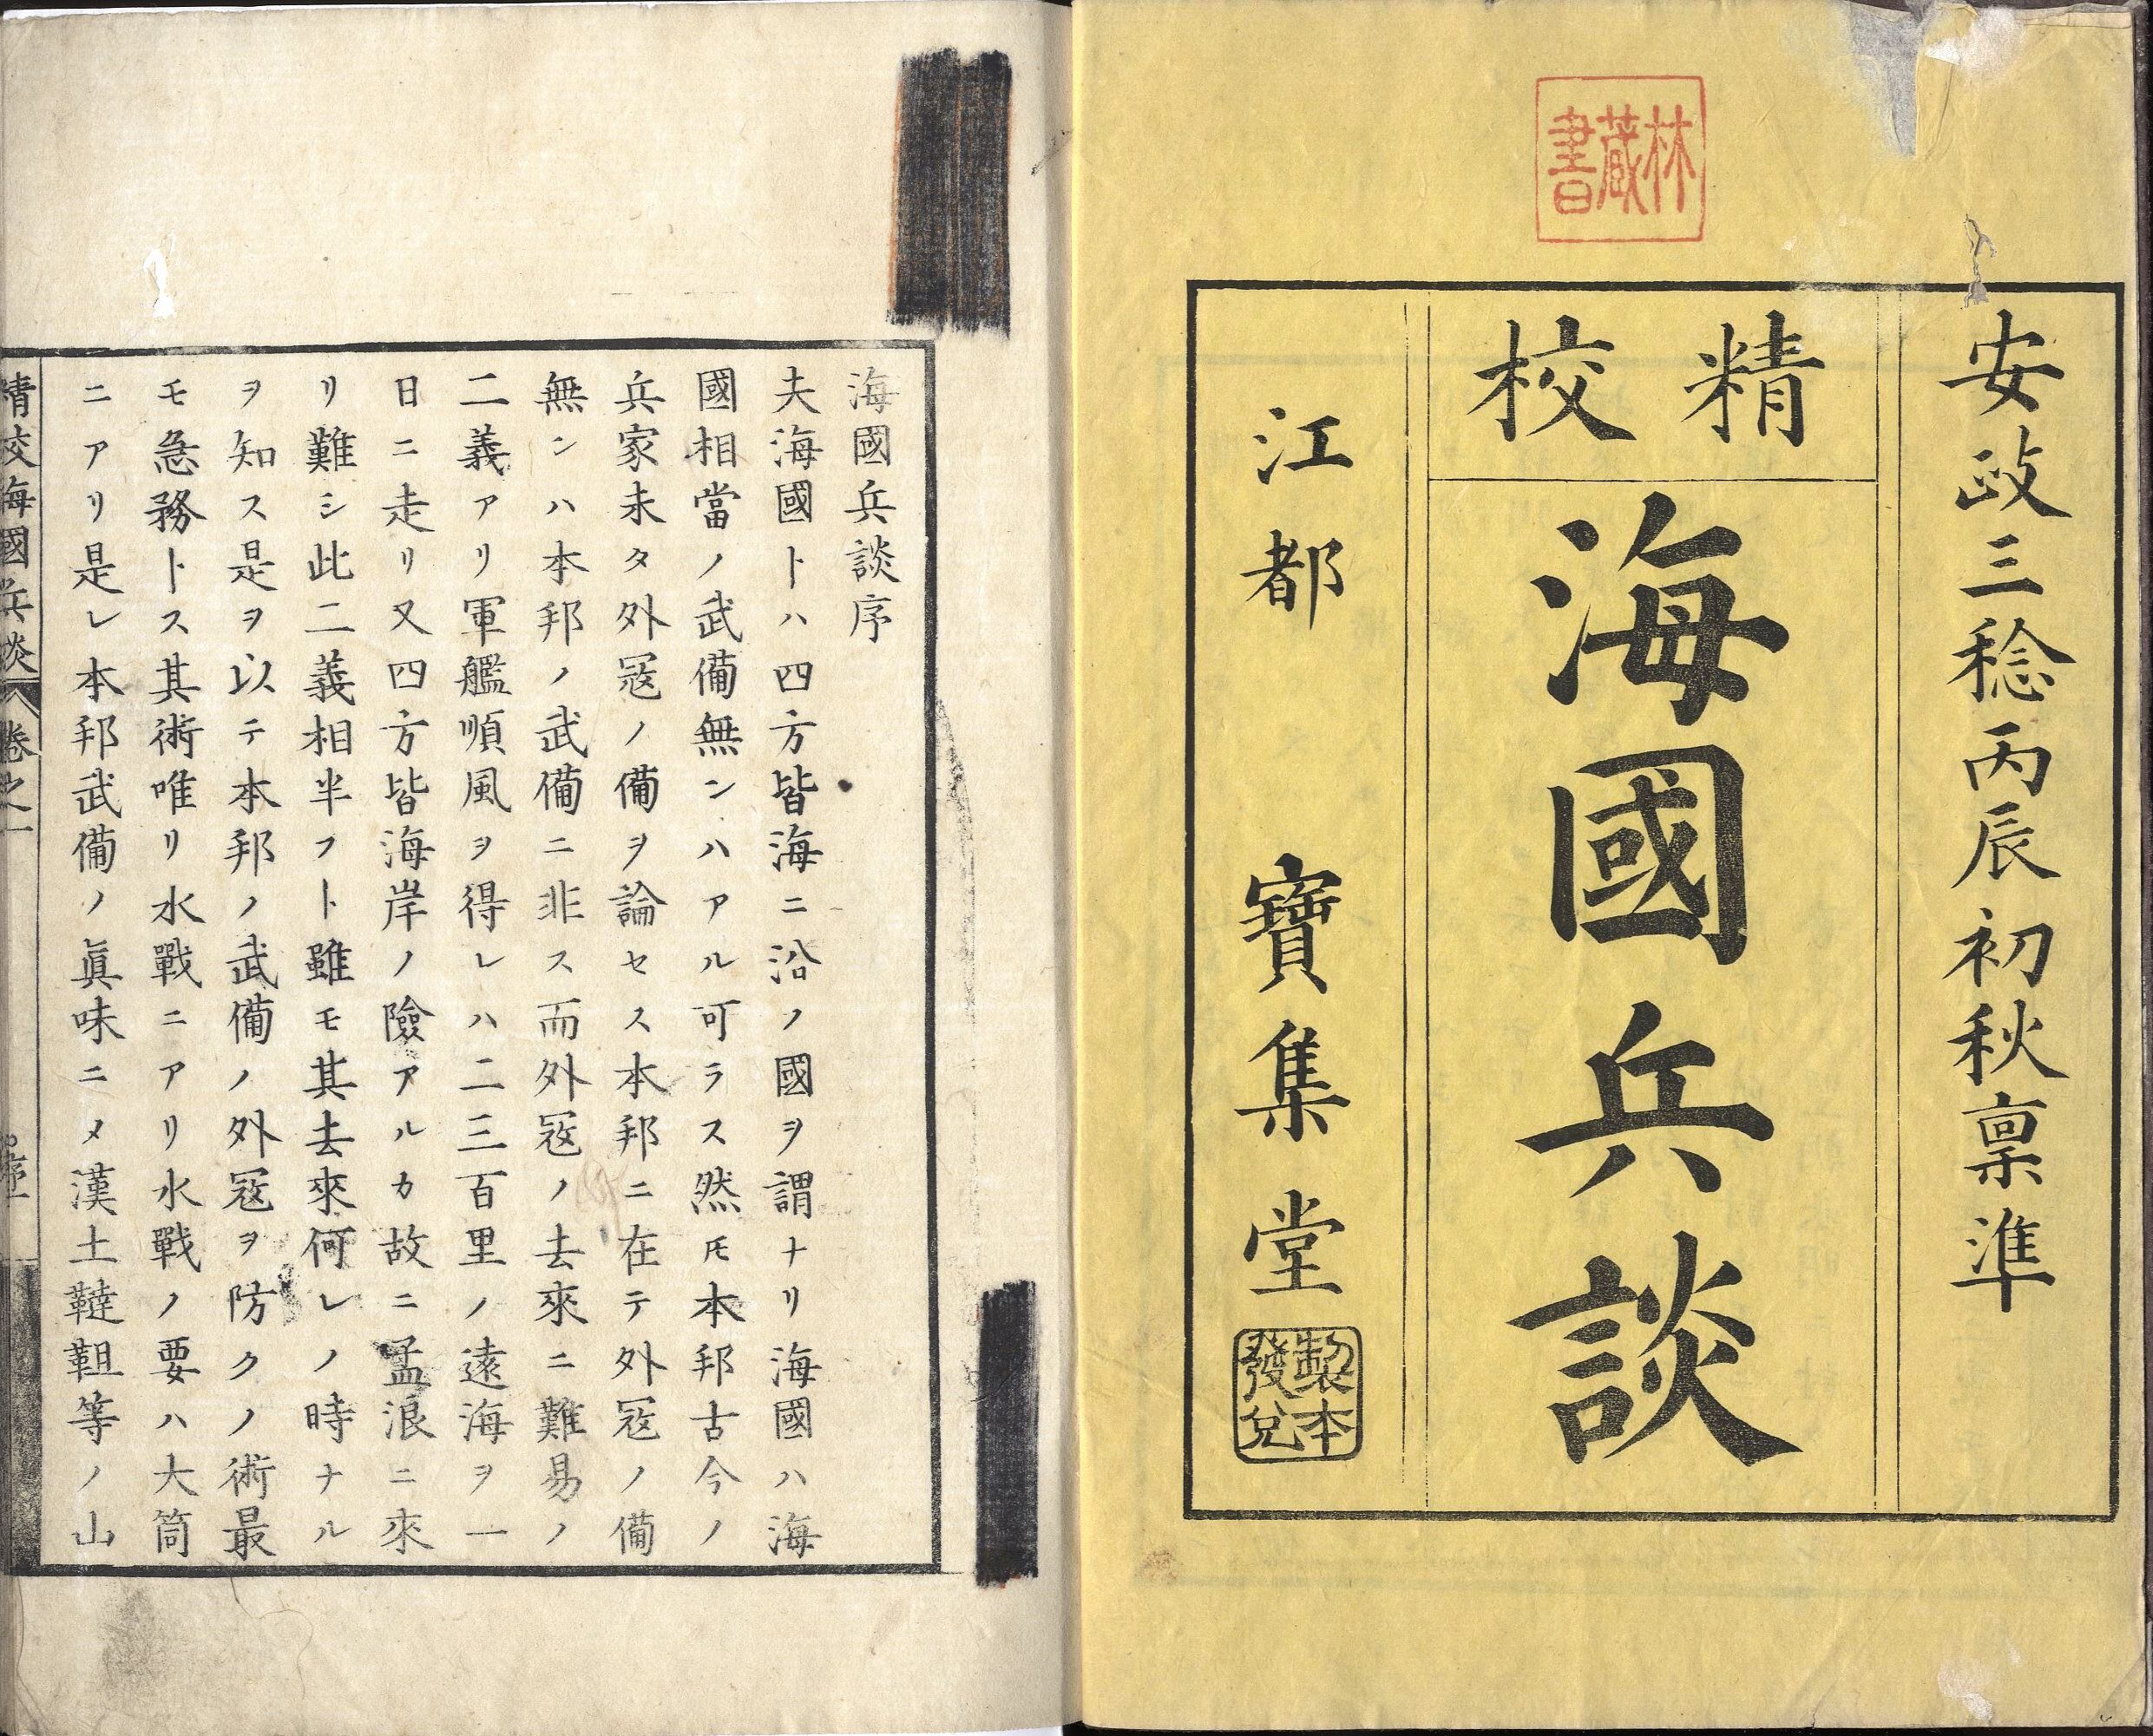 林
藏
書
安政三稔丙辰初秋稟準
精校
海國兵談
江都 寶集堂
製本
發兌
海國兵談序
夫海國トハ四方皆海ニ沿ノ國ヲ謂ナリ海國ハ海
國相當ノ武備無ンハアル可ラス然𪜈本邦古今ノ
兵家未タ外寇ノ備ヲ論セス本邦ニ在テ外寇ノ備
無ンハ本邦ノ武備ニ非ス而外寇ノ去來ニ難易ノ
二義アリ軍艦順風ヲ得レハ二三百里ノ遠海ヲ一
日ニ走リ又四方皆海岸ノ險アルカ故ニ孟浪ニ來
リ難シ此二義相半フト雖モ其去來何レノ時ナル
ヲ知ス是ヲ以テ本邦ノ武備ノ外寇ヲ防クノ術最
モ急務トス其術唯リ水戰ニアリ水戰ノ要ハ大筒
ニアリ是レ本邦武備ノ眞味ニメ漢土韃靼等ノ山
精校海國兵談 卷之一 序一